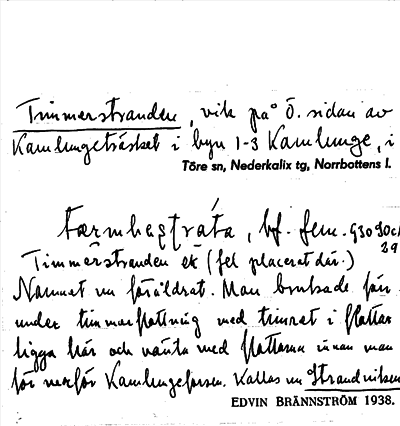 Timmerstranden, vik på Ö. sidan av
Kamlungeträsket i byn 1-3 Kamlunge, i
Töre sn, Nederkalix tg, Norrbottens l.
bf. fem. G30 SO
29
Timmerstranden ek (fel placerat där.)
Namnet nu föråldrat. Man brukade förr
under timmerflottning med timret i flottar
ligga här och vänta med flottarna innan man
for nerför Kamlungeforsen. Kallas nu Strandviken
EDVIN BRÄNNSTRÖM 1938.